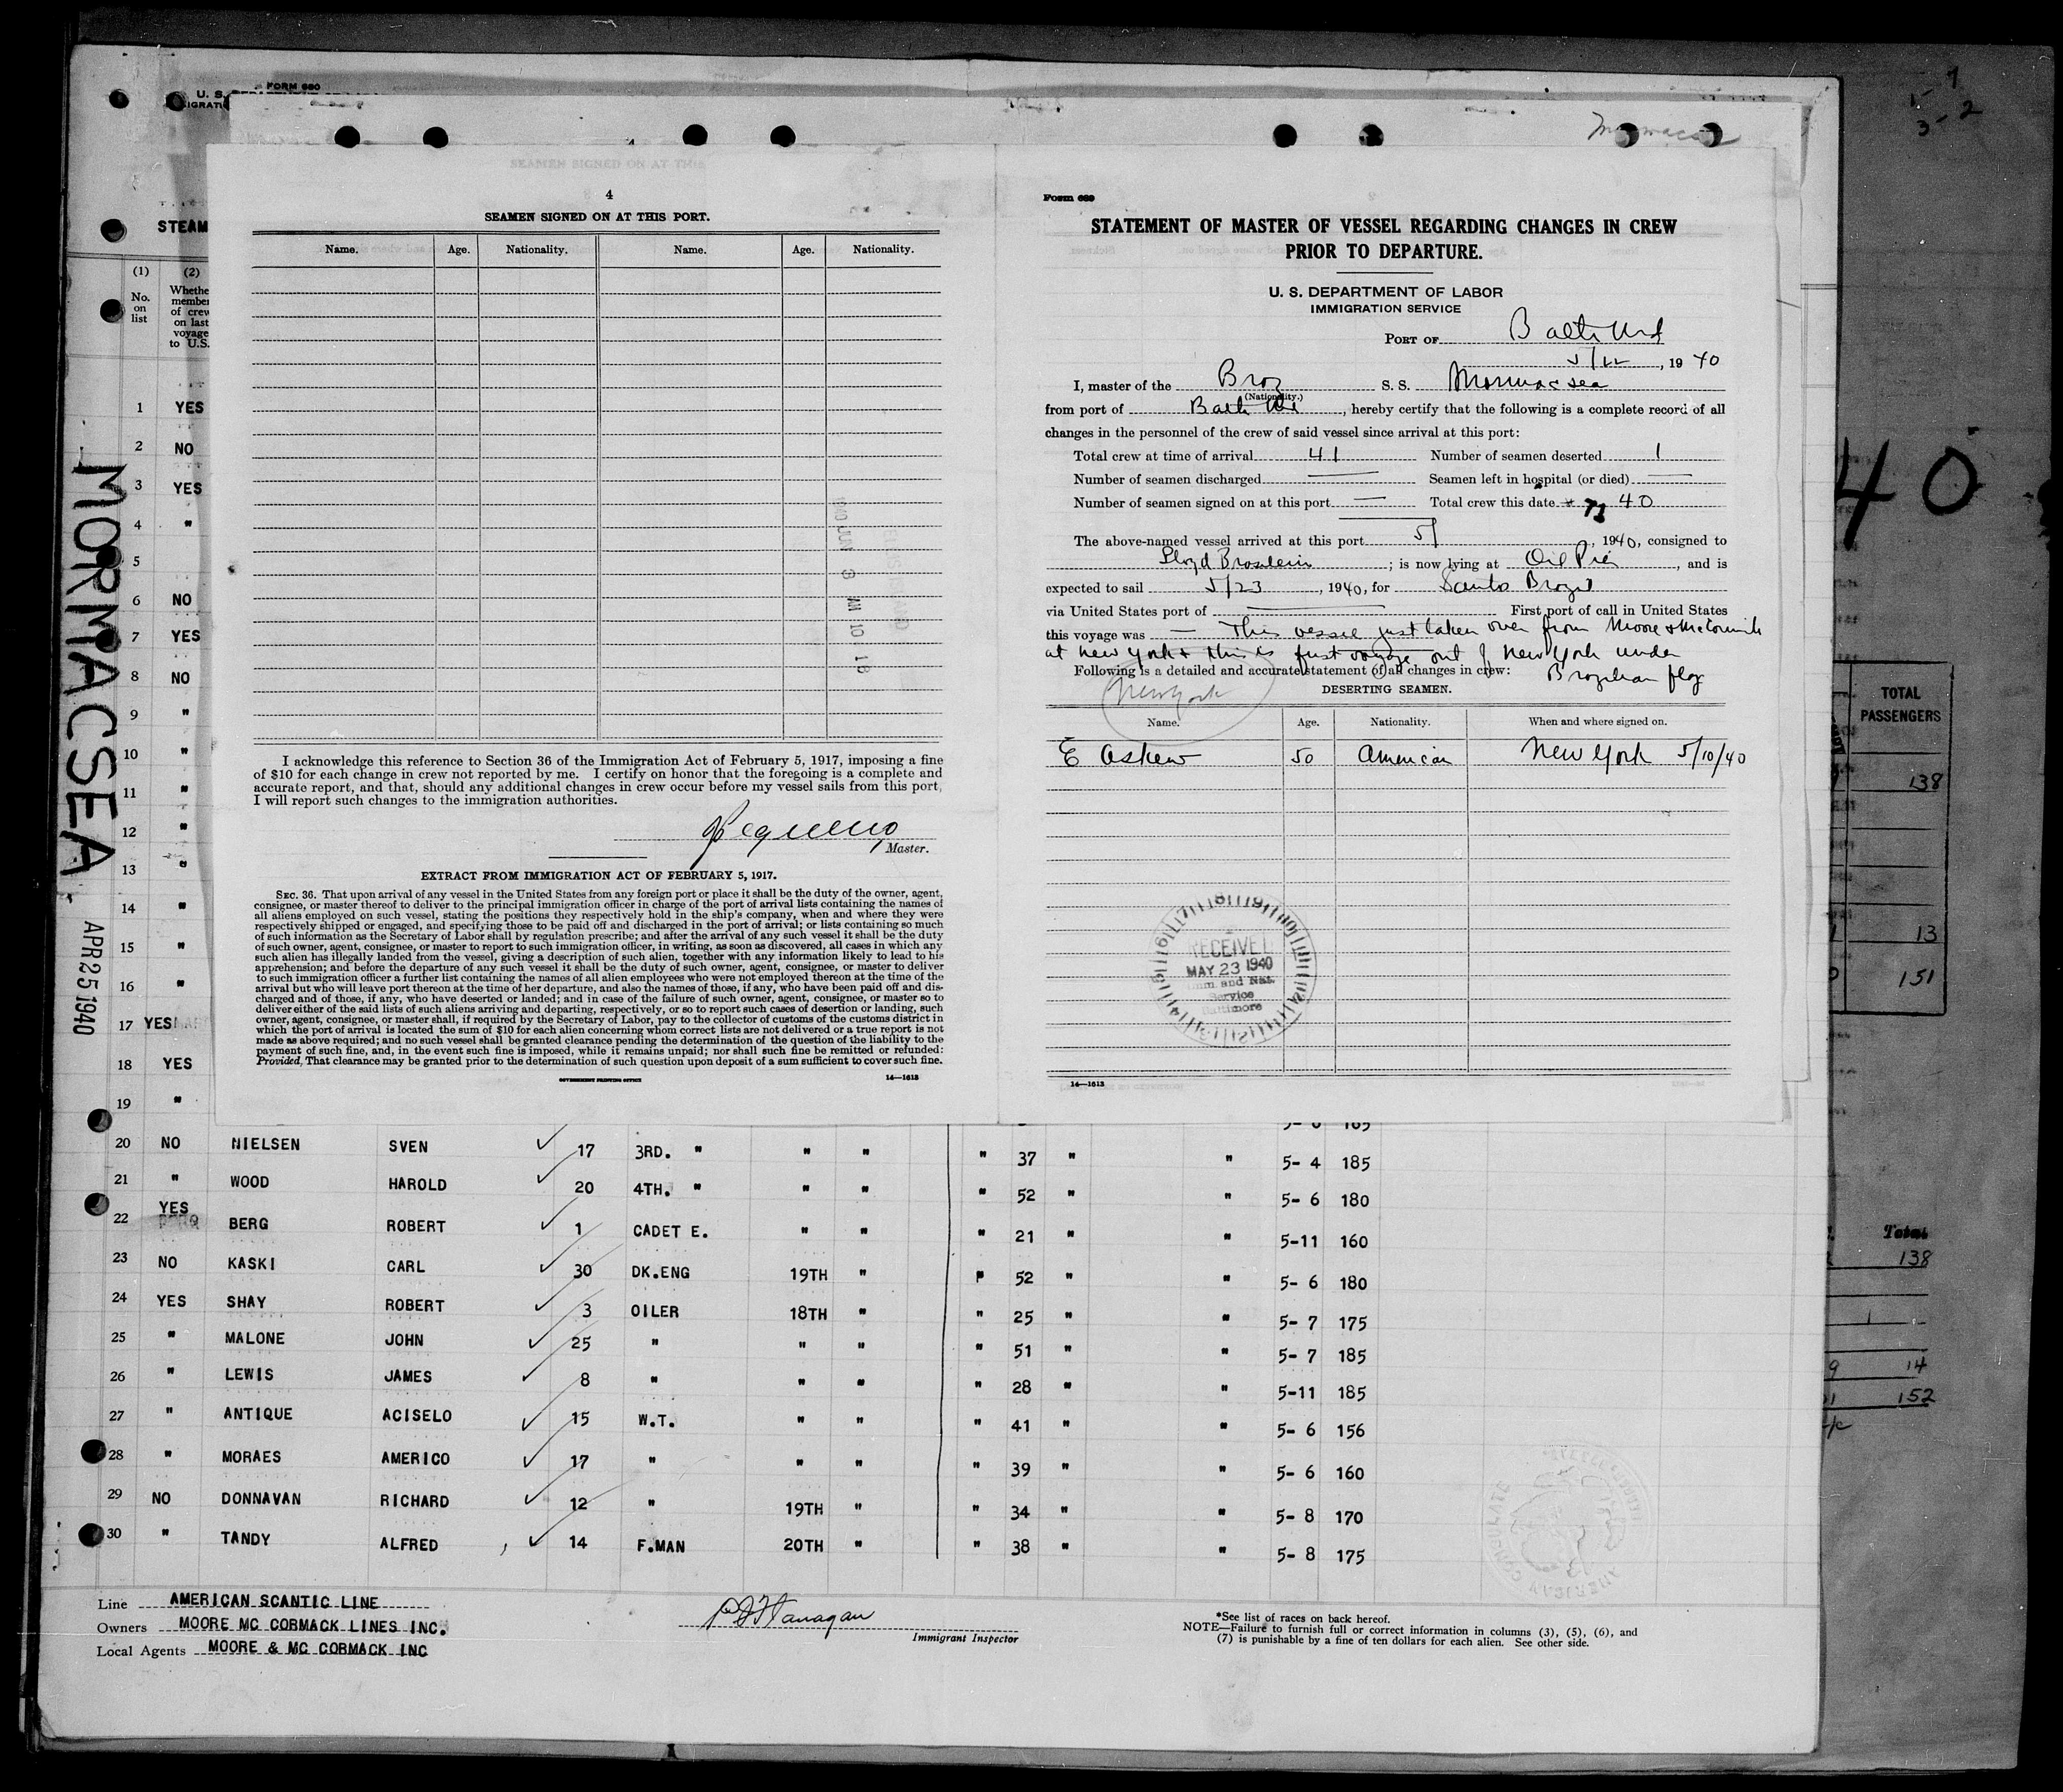 FORM 680
U. S.
4
SEAMEN SIGNED ON AT THIS PORT.
Name. Age. Nationality. Name. Age. Nationality.
I acknowledge this reference to Section 36 of the Immigration Act of February 5, 1917, imposing a fine
of $10 for each change in crew not reported by me. I certify on honor that the foregoing is a complete and
accurate report, and that, should any additional changes in crew occur before my vessel sails from this port,
I will report such changes to the immigration authorities.
Master.
EXTRACT FROM IMMIGRATION ACT OF FEBRUARY 5, 1917.
SEC. 36. That upon arrival of any vessel in the United States from any foreign port or place it shall be the duty of the owner, agent,
consignee, or master thereof to deliver to the principal immigration officer in charge of the port of arrival lists containing the names of
all aliens employed on such vessel, stating the positions they respectively hold in the ship's company, when and where they were
respectively shipped or engaged, and specifying those to be paid off and discharged in the port of arrival; or lists containing so much
of such information as the Secretary of Labor shall by regulation prescribe; and after the arrival of any such vessel it shall be the duty
of such owner, agent, consignee, or master to report to such immigration officer, in writing, as soon as discovered, all cases in which any
such alien has illegally landed from the vessel, giving a description of such alien, together with any information likely to lead to his
apprehension; and before the departure of any such vessel it shall be the duty of such owner, agent, consignee, or master to deliver
to such immigration officer a further list containing the names of all alien employees who were not employed thereon at the time of the
arrival but who will leave port thereon at the time of her departure, and also the names of those, if any, who have been paid off and dis-
charged and of those, if any, who have deserted or landed; and in case of the failure of such owner, agent, consignee, or master so to
deliver either of the said lists of such aliens arriving and departing, respectively, or so to report such cases of desertion or landing, such
owner, agent, consignee, or master shall, if required by the Secretary of Labor, pay to the collector of customs of the customs district in
which the port of arrival is located the sum of $10 for each alien concerning whom correct lists are not delivered or a true report is not
made as above required; and no such vessel shall be granted clearance pending the determination of the question of the liability to the
payment of such fine, and, in the event such fine is imposed, while it remains unpaid; nor shall such fine be remitted or refunded:
Provided, That clearance may be granted prior to the determination of such question upon deposit of a sum sufficient to cover such fine.
GOVERNMENT PRINTING OFFICE 14—1613
1940 JUN 3 AM 10 18
Form 689
STATEMENT OF MASTER OF VESSEL REGARDING CHANGES IN CREW
PRIOR TO DEPARTURE.
U. S. DEPARTMENT OF LABOR
IMMIGRATION SERVICE
PORT OF Balto Md
5/22, 1940
I, master of the Braz S. S. Mormacsea
(Nationality.)
from port of Balto Md, hereby certify that the following is a complete record of all
changes in the personnel of the crew of said vessel since arrival at this port:
Total crew at time of arrival 41 Number of seamen deserted 1
Number of seamen discharged — Seamen left in hospital (or died) —
Number of seamen signed on at this port — Total crew this date 40
The above-named vessel arrived at this port 5/, 1940, consigned to
Lloyd Brasileiro; is now lying at Oil Pier, and is
expected to sail 5/23, 1940, for Santos Brazil
via United States port of — First port of call in United States
this voyage was — This vessel just taken over from Moore & McCormick
at new york & this is first voyage out of New York under
Brazilian flag
Following is a detailed and accurate statement of all changes in crew:
New York
DESERTING SEAMEN.
Name. Age. Nationality. When and where signed on.
E Askew 50 American New York 5/10/40
RECEIVED
MAY 23 1940
Imm. and Nat.
Service
Baltimore
14—1613
STEAM
(1) (2)
No. on list
Whethe
member
of crew
on last
voyage
to U.S.
1 YES
2 NO
3 YES
4 "
5
6 NO
7 YES
8 NO
9 "
10 "
11 "
12 "
13 "
14 "
15 "
16 "
17 YES
18 YES
19 "
20 NO NIELSEN SVEN 17 3RD. " " " " 37 " " 5- 4 185
21 " WOOD HAROLD 20 4TH. " " " " 52 " " 5- 6 180
22 YES BERG ROBERT 1 CADET E. " " " 21 " " 5-11 160
23 NO KASKI CARL 30 DK.ENG 19TH " " 52 " " 5- 6 180
24 YES SHAY ROBERT 3 OILER 18TH " " 25 " " 5- 7 175
25 " MALONE JOHN 25 " " " " 51 " " 5- 7 185
26 " LEWIS JAMES 8 " " " " 28 " " 5-11 185
27 " ANTIQUE ACISELO 15 W.T. " " " 41 " " 5- 6 156
28 " MORAES AMERICO 17 " " " " 39 " " 5- 6 160
29 NO DONNAVAN RICHARD 12 " 19TH " " 34 " " 5- 8 170
30 " TANDY ALFRED 14 F.MAN 20TH " " 38 " " 5- 8 175
MORMACSEA
APR 25 1940
Line AMERICAN SCANTIC LINE
Owners MOORE MC CORMACK LINES INC.
Local Agents MOORE & MC CORMACK INC
Flanagan
Immigrant Inspector
*See list of races on back hereof.
NOTE—Failure to furnish full or correct information in columns (3), (5), (6), and
(7) is punishable by a fine of ten dollars for each alien. See other side.
AMERICAN CONSULATE
40
TOTAL
PASSENGERS
138
13
151
Total
138
1
14
152